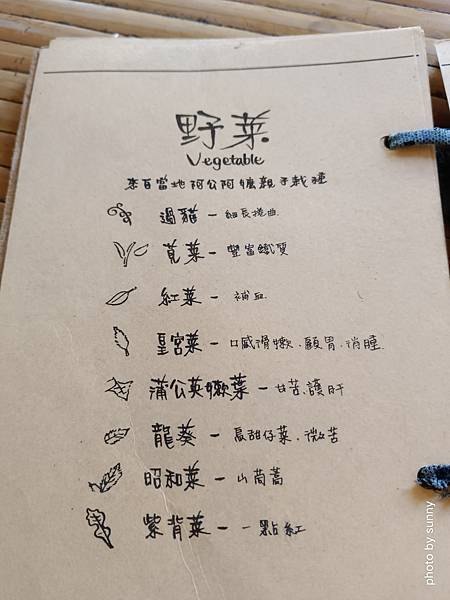 野菜
Vegetable
來自當地阿公阿嬤親手栽種
過貓－細長捲曲
莧菜－豐富纖更
紅菜－補血
皇宮菜－口感滑嫩、顧胃、消腫
蒲公英嫩葉－甘苦、護肝
龍葵－烏甜仔菜、微苦
昭和菜－山茼蒿
紫背菜－一點紅
photo by sunny